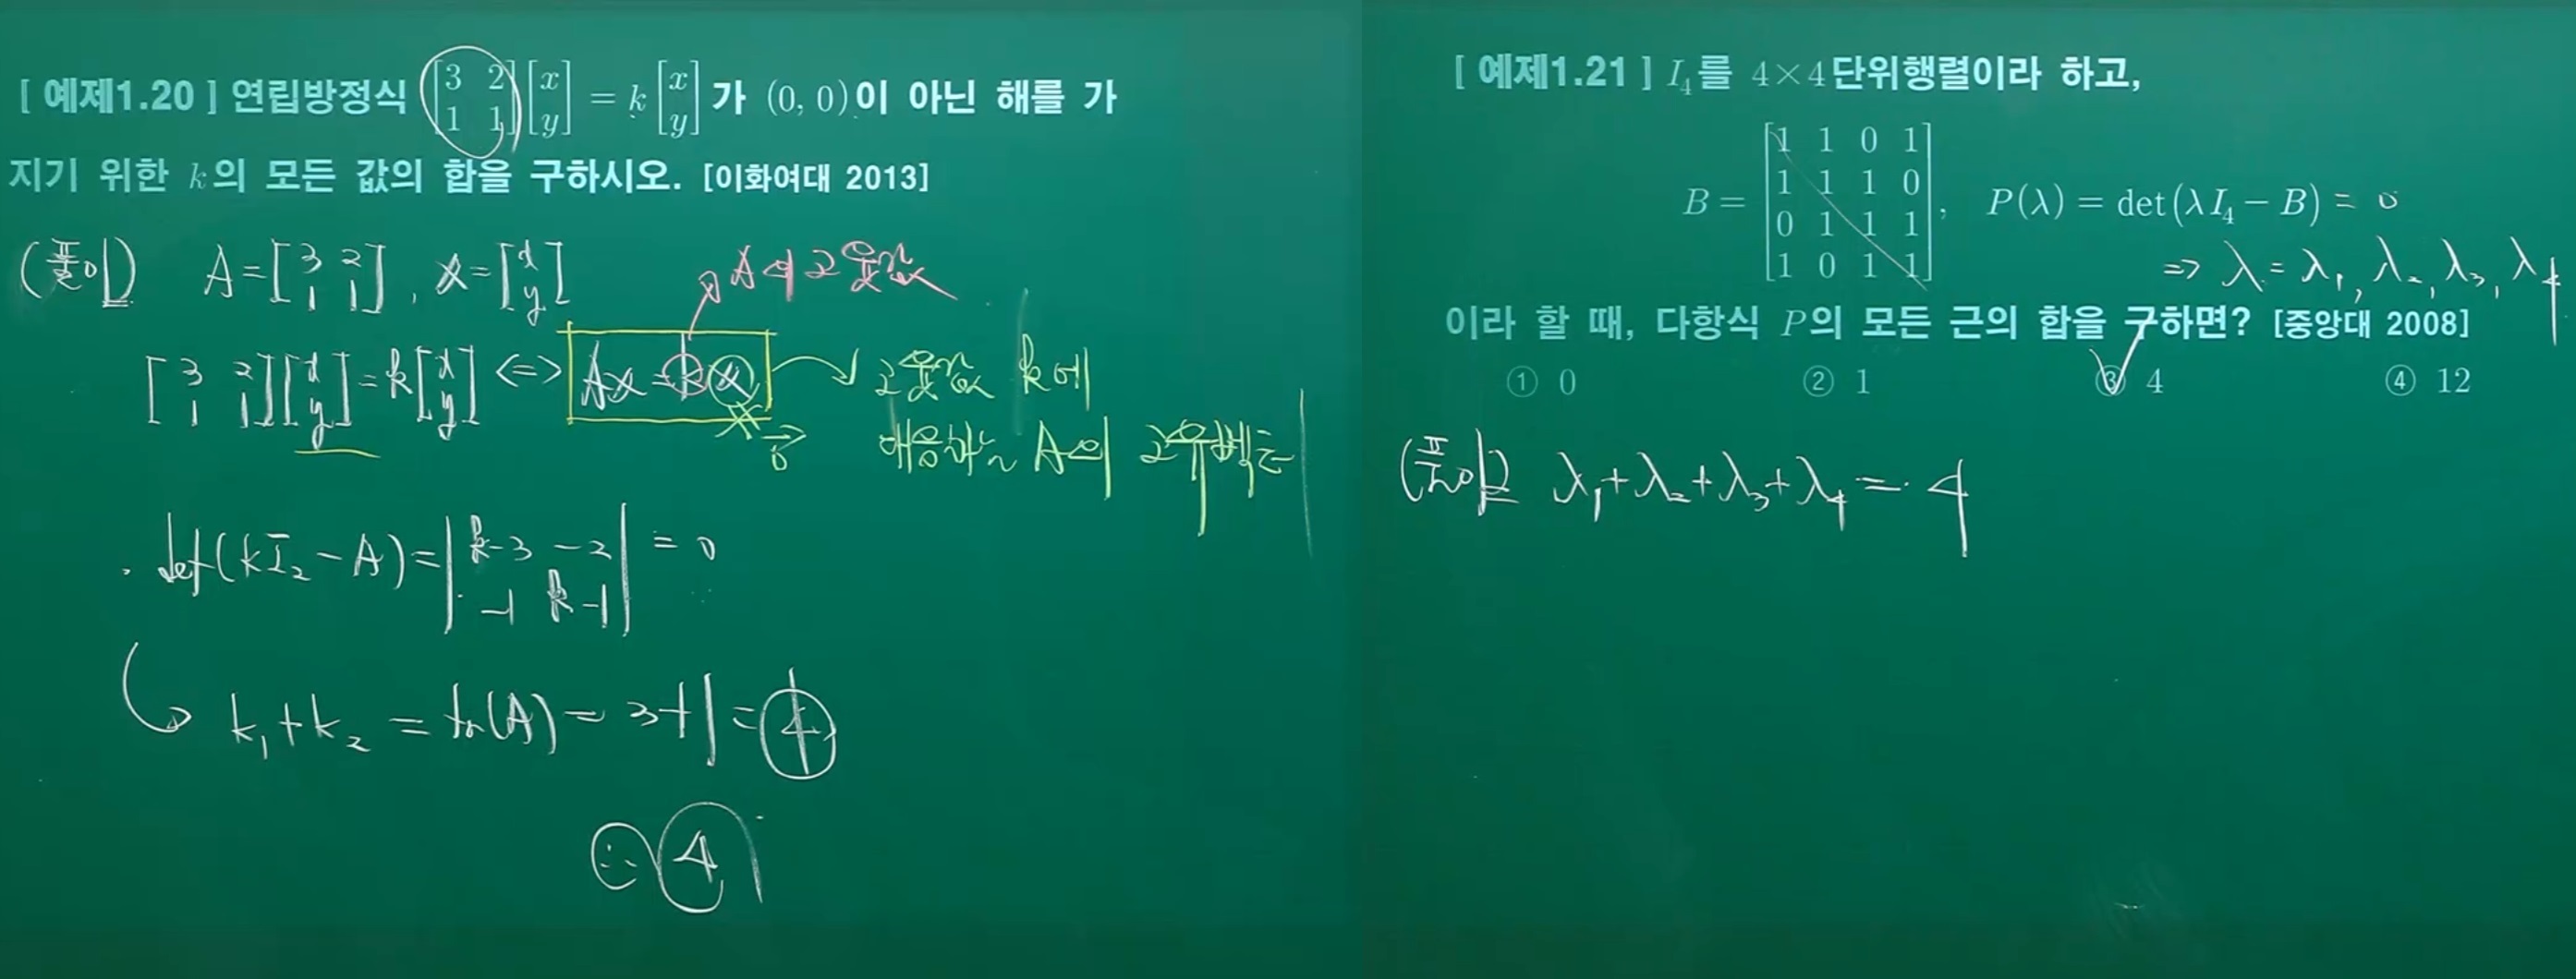 [ 예제1.20 ] 연립방정식 [3 2; 1 1][x; y] = k[x; y] 가 (0, 0)이 아닌 해를 가
지기 위한 k의 모든 값의 합을 구하시오. [이화여대 2013]
(풀이) A = [3 2; 1 1], x = [x; y]
A의 고유값
[3 2; 1 1][x; y] = k[x; y] <=> Ax = kx
고유값 k에
대응하는 A의 고유벡터
det(kI₂ - A) = |k-3 -2; -1 k-1| = 0
k₁ + k₂ = tr(A) = 3+1 = 4
∴ 4
[ 예제1.21 ] I₄를 4×4단위행렬이라 하고,
B = [1 1 0 1; 1 1 1 0; 0 1 1 1; 1 0 1 1], P(λ) = det(λI₄ - B) = 0
=> λ = λ₁, λ₂, λ₃, λ₄
이라 할 때, 다항식 P의 모든 근의 합을 구하면? [중앙대 2008]
① 0 ② 1 ③ 4 ④ 12
(풀이) λ₁+λ₂+λ₃+λ₄ = 4